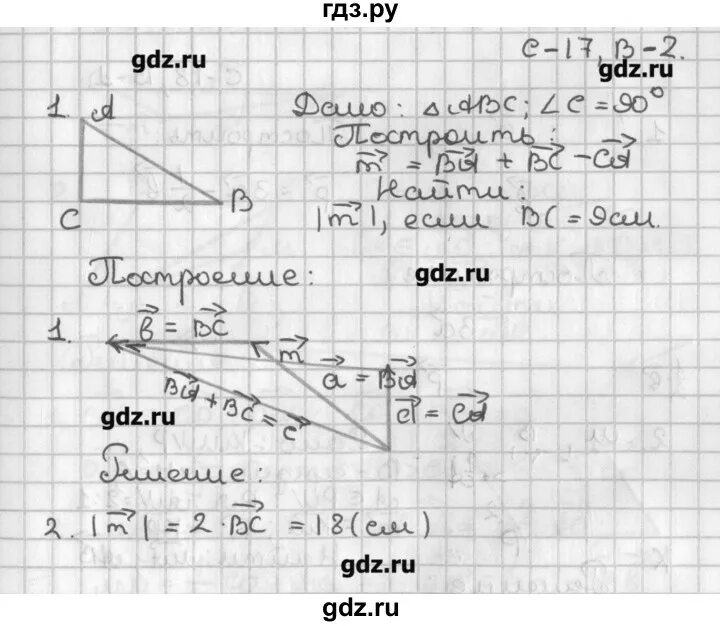 гдз.ру
gdz.ru
С-17, В-2.
gdz.ru
1. A
C
B
Дано: △ABC; ∠C = 90°
Построить:
m = BA + BC - CA
Найти:
|m|, если BC = 9см.
Построение:
gdz.ru
1. b = BC
m
a = BA
BA + BC = c
d = CA
gdz.ru
Решение:
2. |m| = 2·BC = 18(см)
gdz.ru
gdz.ru